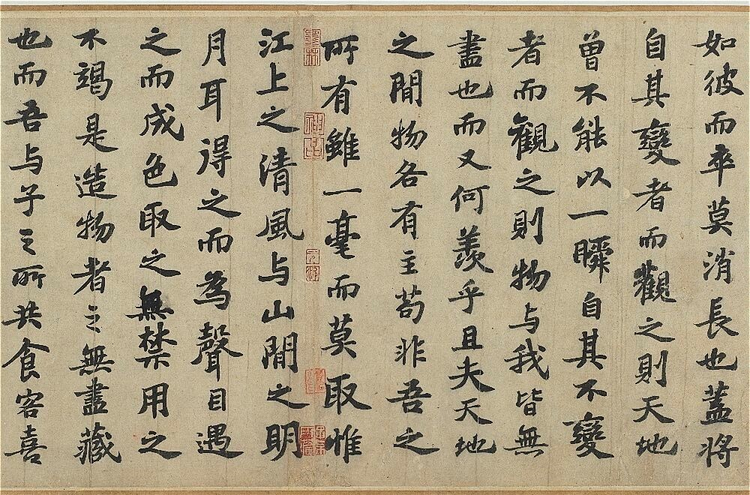 如彼而卒莫消長也蓋將
自其變者而觀之則天地
曾不能以一瞬自其不變
者而觀之則物与我皆無
盡也而又何羨乎且夫天地
之閒物各有主苟非吾之
所有雖一毫而莫取惟
江上之清風与山閒之明
月耳得之而為聲目遇
之而成色取之無禁用之
不竭是造物者之無盡藏
也而吾与子之所共食客喜